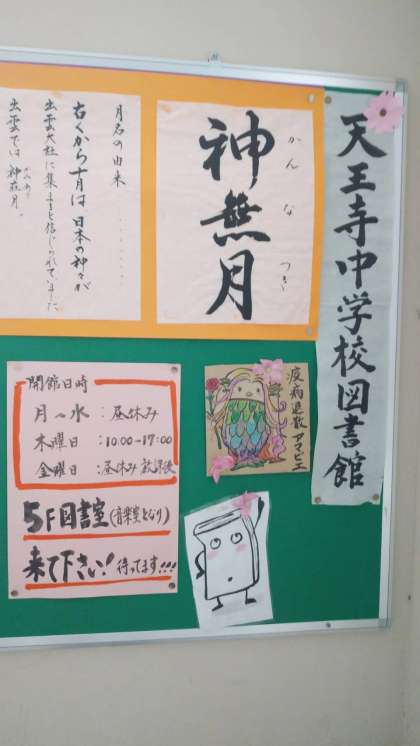 天王寺中学校図書館
神無月
かんなつき
月名の由来
古くから十月は日本の神々が
出雲大社に集まると信じられていました
出雲では神在月。
開館日時
月～水：昼休み
木曜日：10:00-17:00
金曜日：昼休み 放課後
5F図書室(音楽室となり)
来て下さい!待ってます!!!
疫病退散アマビエ